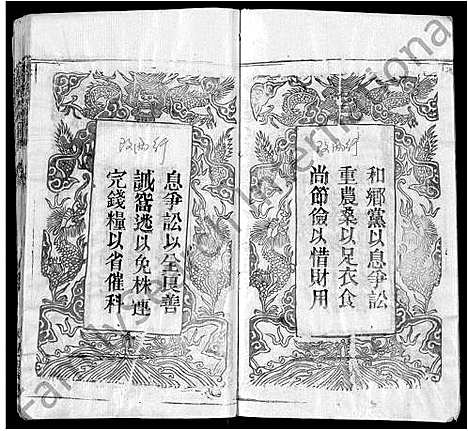 和鄉黨以息爭訟
重農桑以足衣食
尚節儉以惜財用
息爭訟以全良善
誡窩逃以免株連
完錢糧以省催科
FamilySearch International